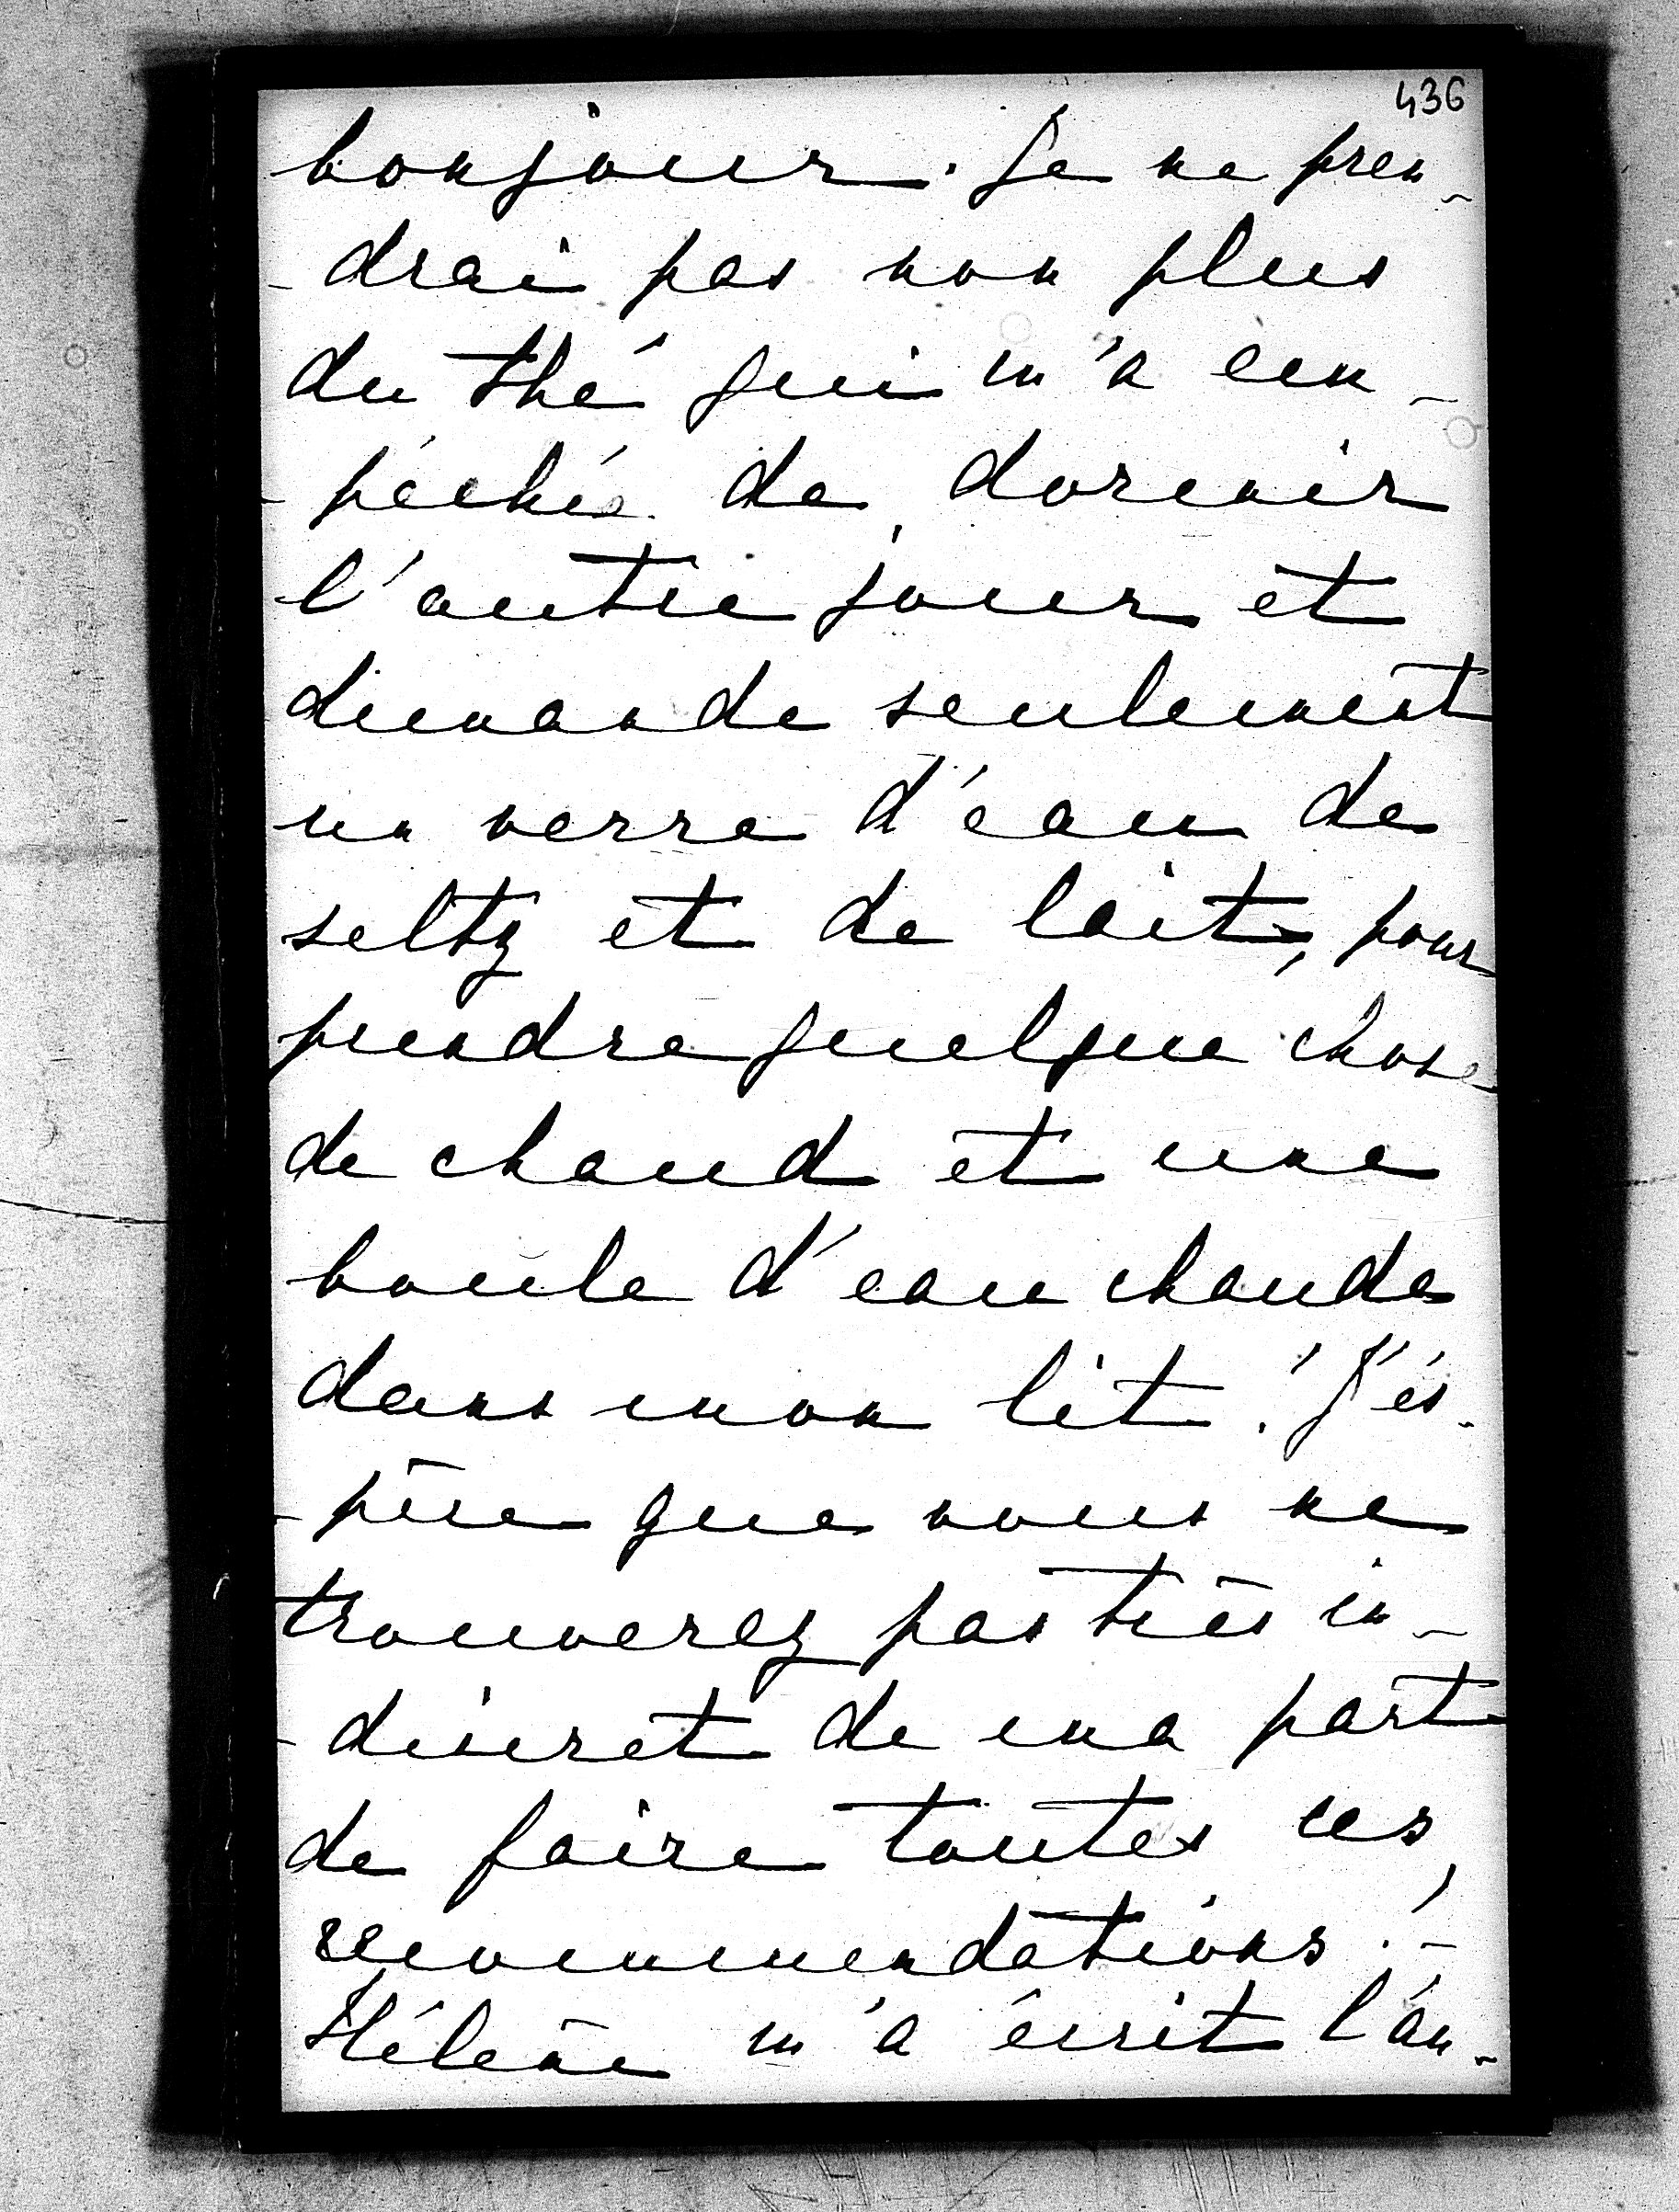 436
bonjour. Je ne pren-
-drai pas non plus
du thé qui m'a em-
-pêchée de dormir
l'autre jour et
demande seulement
un verre d'eau de
seltz et de lait, pour
prendre quelque chose
de chaud et une
boule d'eau chaude
dans mon lit. J'es-
-père que vous ne
trouverez pas très in-
-discret de ma part
de faire toutes ces
recommendations. -
Hélène m'a écrit l'au-